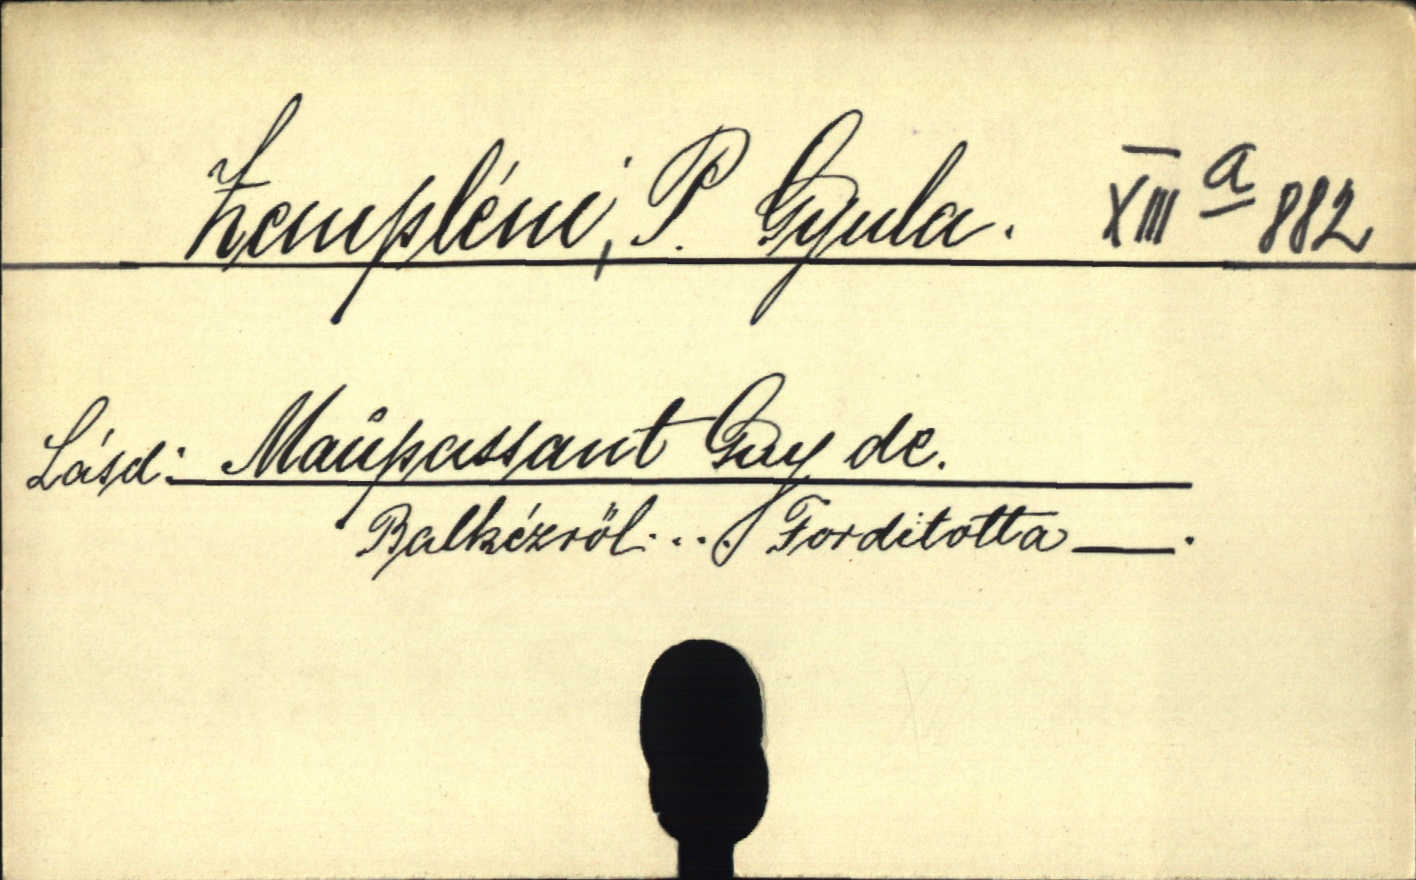 Zempléni, P. Gyula. XIII a 882
Lásd: Maupassant Guy de.
Balkézről... Forditotta —.